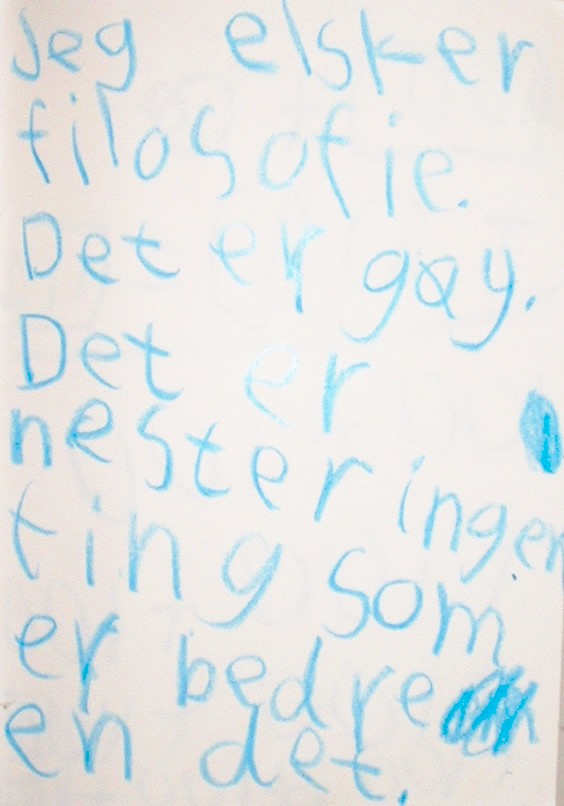 Jeg elsker
filosofie.
Det er gøy.
Det er
nester ingen
ting som
er bedre
en det.